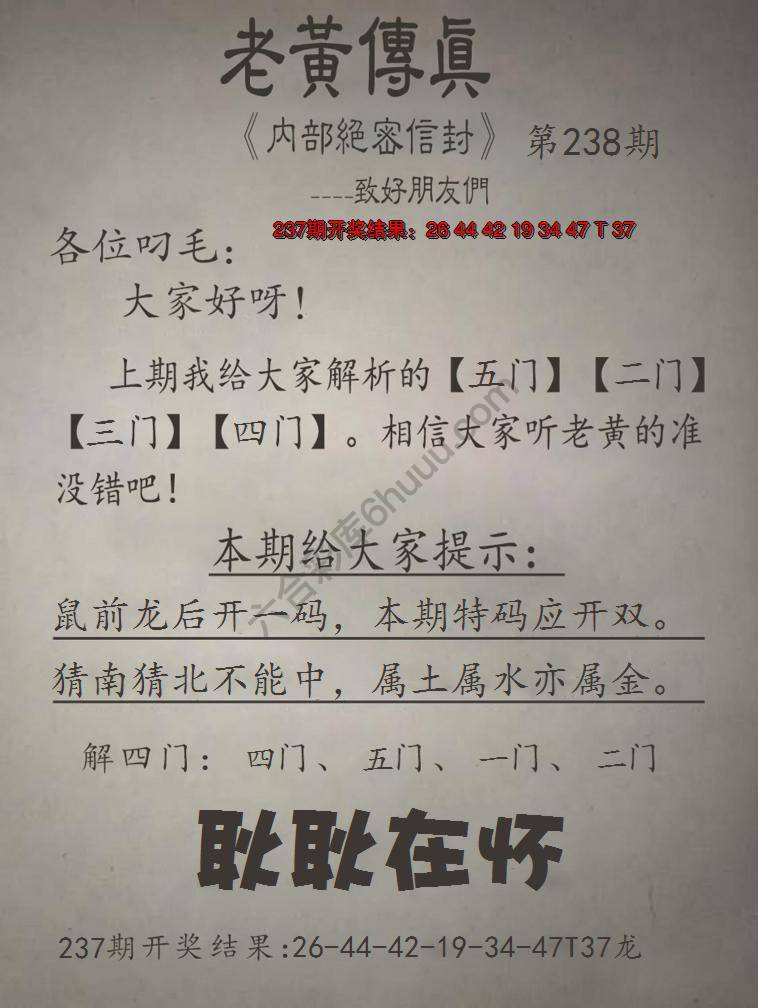 老黃傳眞
《内部絕密信封》 第238期
----致好朋友們
237期开奖结果：26 44 42 19 34 47 T 37
各位叼毛：
大家好呀！
上期我给大家解析的【五门】【二门】
【三门】【四门】。相信大家听老黄的准
没错吧！
六合彩库6huuu.com
本期给大家提示：
鼠前龙后开一码，本期特码应开双。
猜南猜北不能中，属土属水亦属金。
解四门： 四门、 五门、 一门、 二门
耿耿在怀
237期开奖结果:26-44-42-19-34-47T37龙